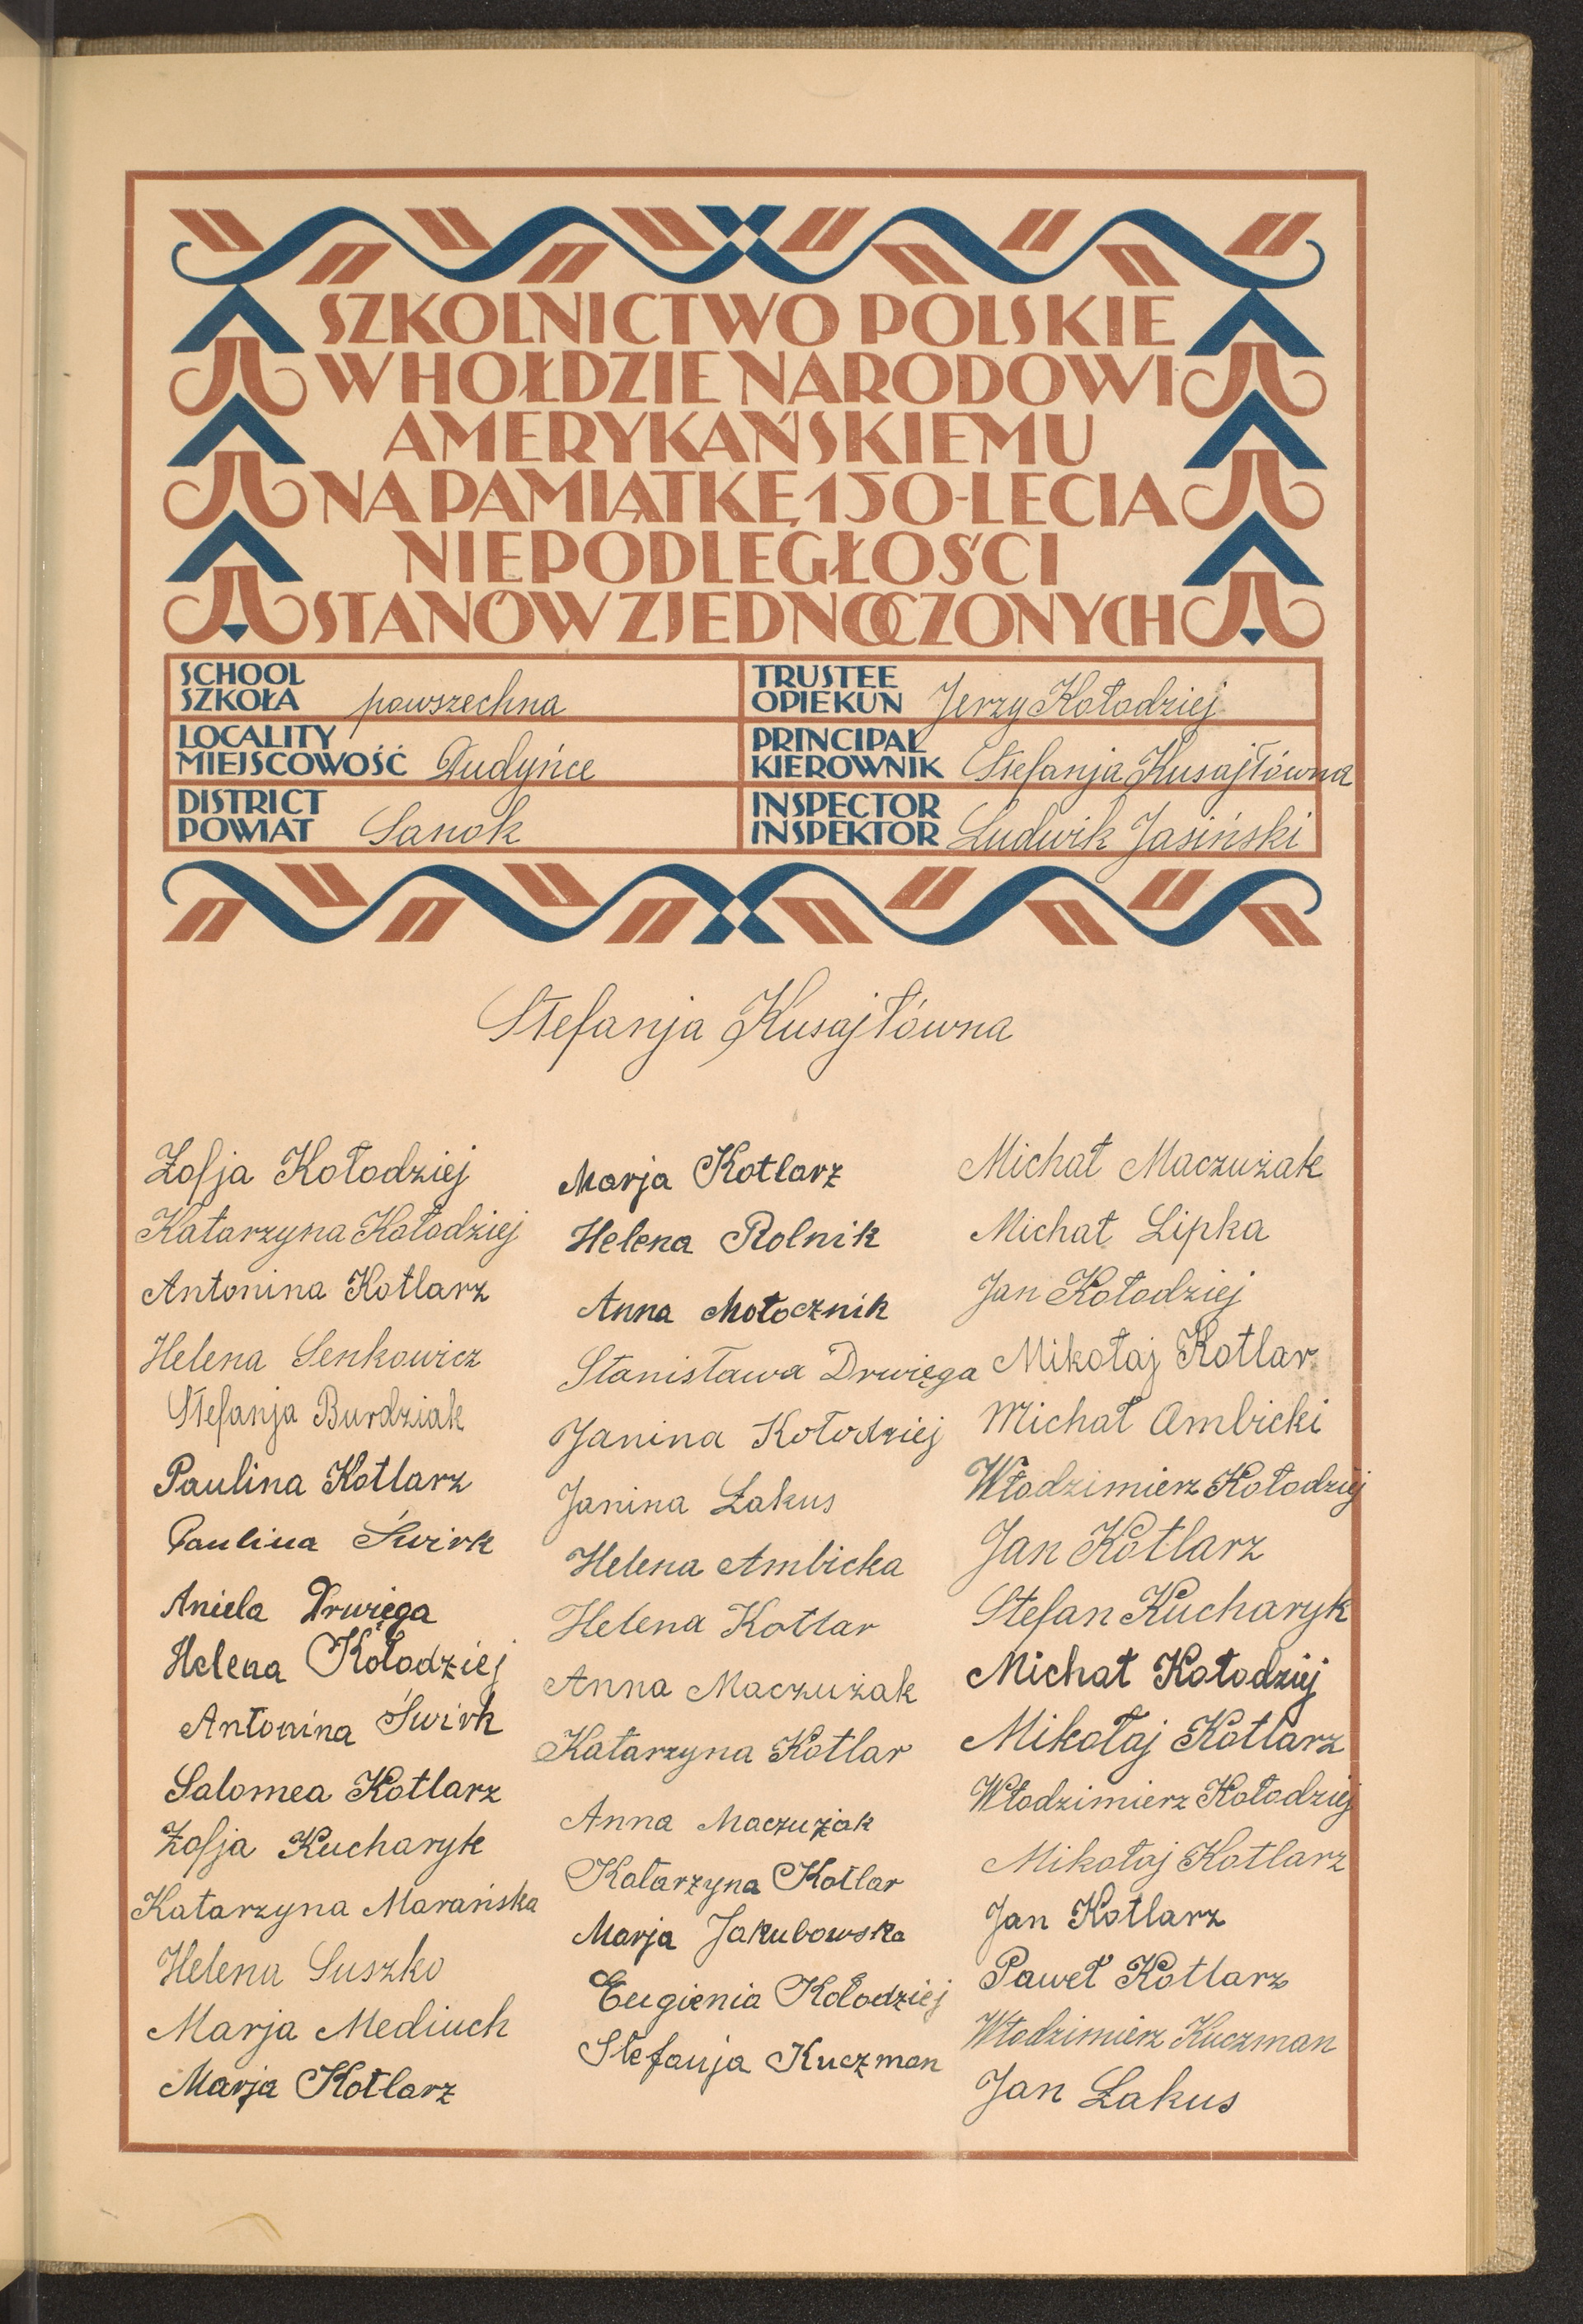 SZKOLNICTWO POLSKIE
W HOŁDZIE NARODOWI
AMERYKAŃSKIEMU
NA PAMIĄTKĘ 150-LECIA
NIEPODLEGŁOŚCI
STANÓW ZJEDNOCZONYCH
SCHOOL
SZKOŁA powszechna
TRUSTEE
OPIEKUN Jerzy Kołodziej
LOCALITY
MIEJSCOWOŚĆ Dudyńce
PRINCIPAL
KIEROWNIK Stefanja Kusajłówna
DISTRICT
POWIAT Sanok
INSPECTOR
INSPEKTOR Ludwik Jasiński
Stefanja Kusajłówna
Zofja Kołodziej
Katarzyna Kołodziej
Antonina Kotlarz
Helena Senkowicz
Stefanja Burdziak
Paulina Kotlarz
Paulina Świrk
Aniela Drwięga
Helena Kołodziej
Antonina Świrk
Salomea Kotlarz
Zofja Kucharyk
Katarzyna Marańska
Helena Suszko
Marja Mediuch
Marja Kotlarz
Marja Kotlarz
Helena Rolnik
Anna Mołocznik
Stanisława Drwięga
Janina Kołodziej
Janina Łakus
Helena Ambicka
Helena Kotlar
Anna Maczużak
Katarzyna Kotlar
Anna Maczużak
Katarzyna Kotlar
Marja Jakubowska
Eugienia Kołodziej
Stefanja Kuczman
Michał Maczużak
Michał Lipka
Jan Kołodziej
Mikołaj Kotlar
Michał Ambicki
Włodzimierz Kołodziej
Jan Kotlarz
Stefan Kucharyk
Michał Kołodziej
Mikołaj Kotlarz
Włodzimierz Kołodziej
Mikołaj Kotlarz
Jan Kotlarz
Paweł Kotlarz
Włodzimierz Kuczman
Jan Łakus